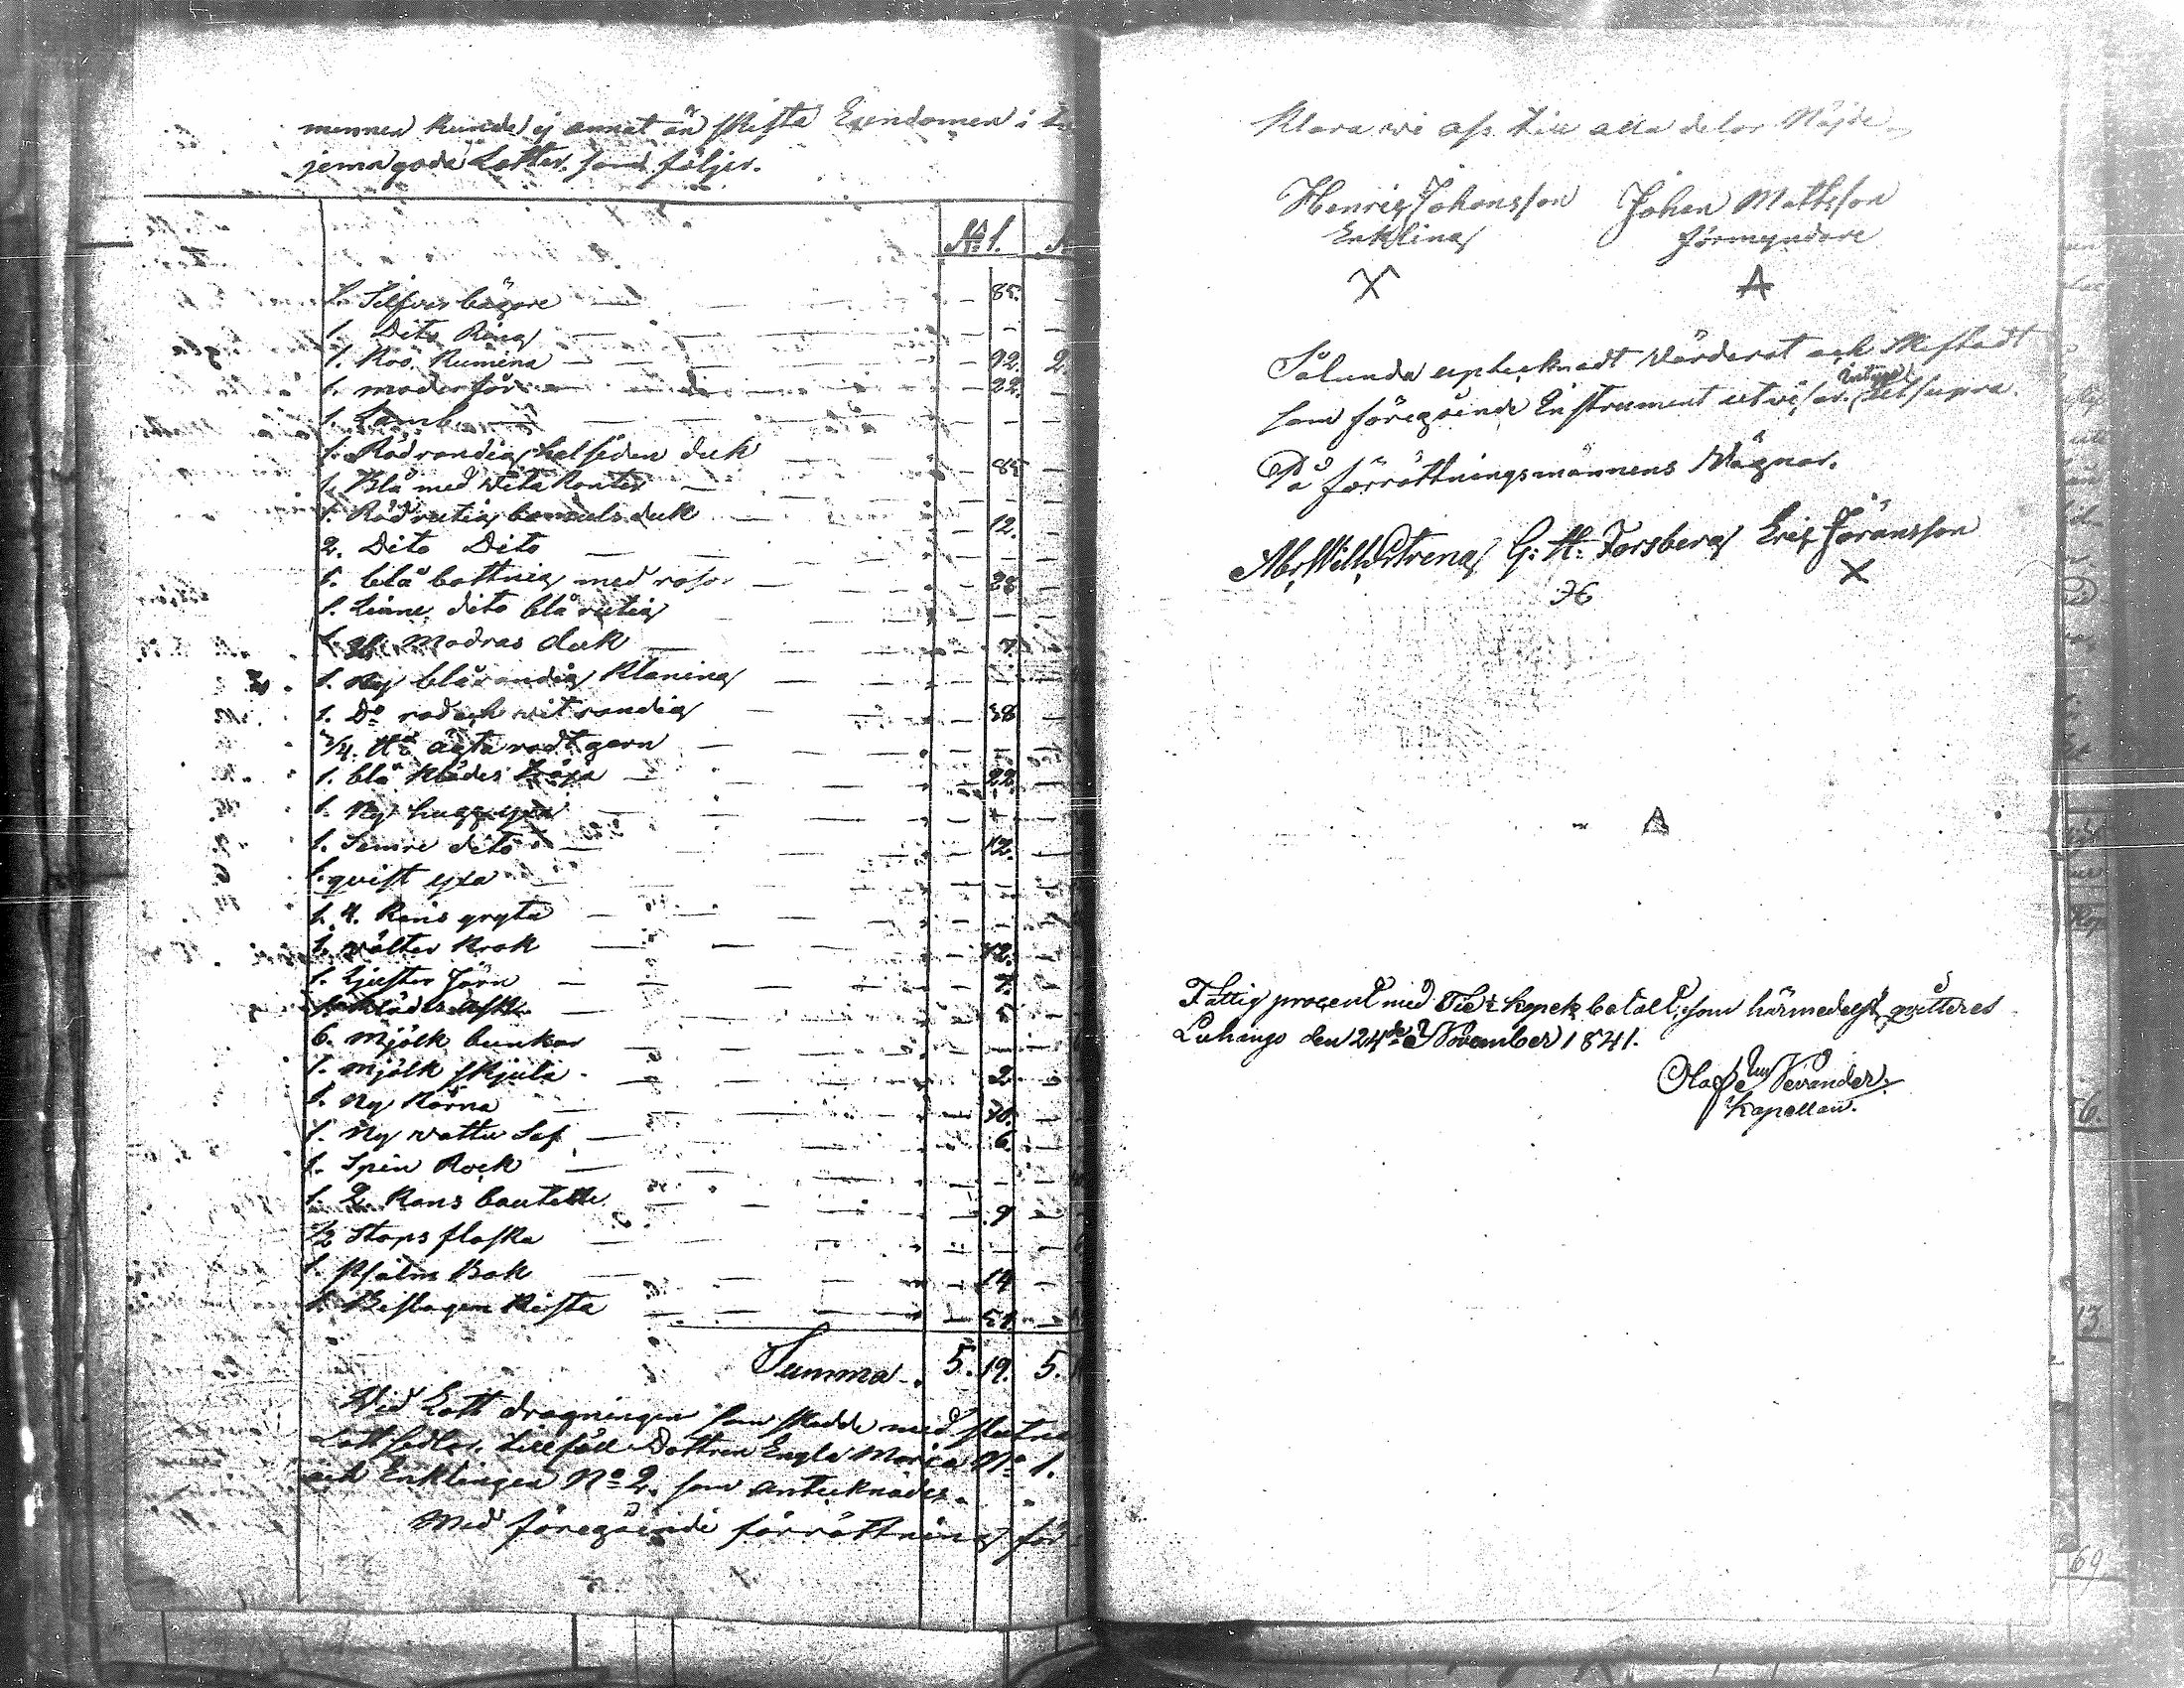 mennen kunde ej annat än skifta Egendomen i
jemngoda Lotter. som följer.
No 1.
1. Silfver bägare — 85.
1. Dito Ring — —
1. Roo. Rumina — 92. 2.
1. moderfår — 22.
1. Lamb — —
1. Rödrandig halfsiden duk
1. Blå med vita Kanter — 85
1. Rödrutig bomuls duk
2. Dito Dito — 12.
1. blå bottnig med rosor — 28
1. Linne dito blå rutig
1. Madras duk — 7.
1. Ny blårandig Klaning
1. Do röd och vit randig — 38
3/4 äkta rödt garn
1. blå Klädes Tröja — 22.
1. Ny hugg yxa
1. Semre dito — 12.
1. qvist yxa
1. 4. Kans gryta
1. välter Krok — 12.
1. Ljuster Järn — 7.
1. Klädes ask — 5
6. Mjölk bunkar
1. Mjölk skjula — 2
1. Ny Kärna — 10.
1. Ny vattuSå — 6.
1. Spin Rock
1. 2 Kans boutelle — 9
1/2 Stops flaska
1. Psalm Bok — 14
1. Beslagen Kista — 51.
Summa 5. 19. 5.
Wid Lott dragningen som skedde med slutna
Lottsedlar. tillföll Dottren Engla Maria No 1.
och Enklingen No 2. som antecknades.
Med föregående förrättning för
klara vi oss till alla delar Nöjde
Henric Johansson Johan Mattsson
Enkling förmyndare
X A
Sålunda uptecknadt värderat och Skiftadt
som föregående Instrument utvisar. intyga ut supra.
På förrättningsmännens Vägnar.
Abr Wilh Streng G: H: Forsberg Eric Jöransson
X
A
Fattig procent med Tio kopek betalt, som härmedelst qvitteras
Luhango den 24de November 1841.
Olof Em Nevander.
Kapellan.
6.
13
69